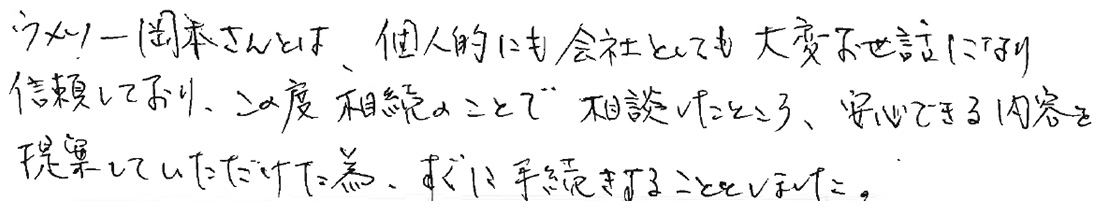 ウメソー岡本さんとは、個人的にも会社としても大変お世話になり
信頼しており、この度相続のことで相談したところ、安心できる内容を
提案していただけた為、すぐに手続きすることとしました。